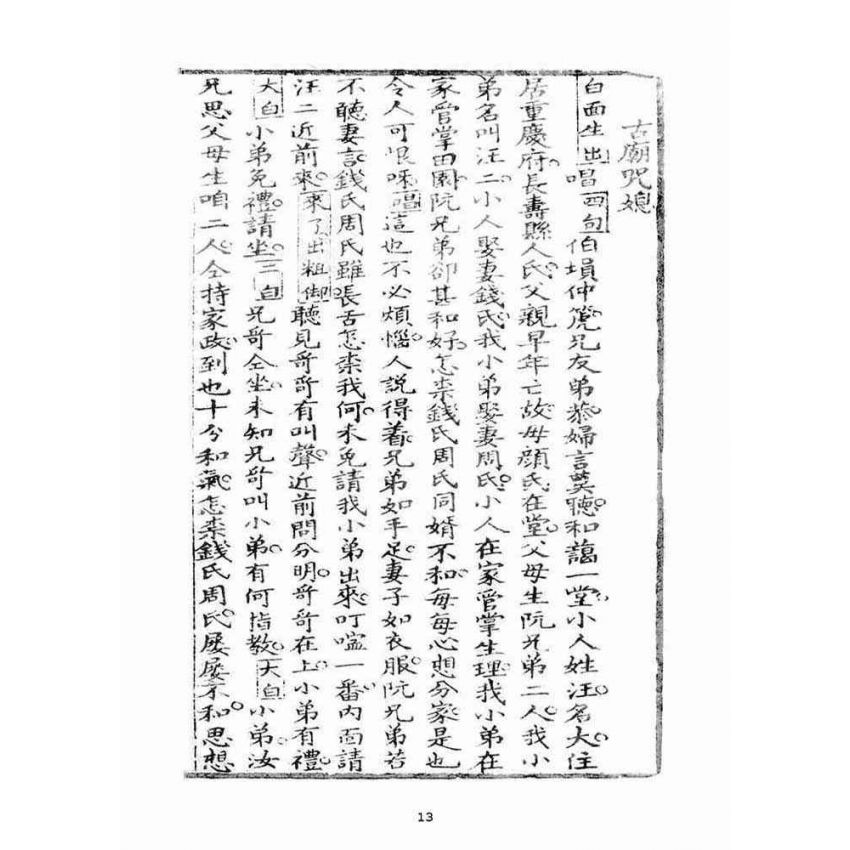 古廟咒媳
白面生出唱四句伯塤仲篪兄友弟恭婦言莫聽和藹一堂小人姓汪名大住
居重慶府長壽縣人氏父親早年亡故母顔氏在堂父母生阮兄弟二人我小
弟名叫汪二小人娶妻錢氏我小弟娶妻周氏小人在家管掌生理我小弟在
家管掌田園阮兄弟卻甚和好怎柰錢氏周氏同婿不和每每心想分家是也
令人可恨咊唱這也不必煩惱人説得着兄弟如手足妻子如衣服阮兄弟若
不聽妻言錢氏周氏雖張舌怎柰我何未免請我小弟出來叮嚀一番内面請
汪二近前來來了出粗御聽見哥哥有叫聲近前問分明哥哥在上小弟有禮
大白小弟免禮請坐三白兄哥仝坐未知兄哥叫小弟有何指教大白小弟汝
兄思父母生咱二人仝持家政到也十分和氣怎柰錢氏周氏屡屡不和思想
13